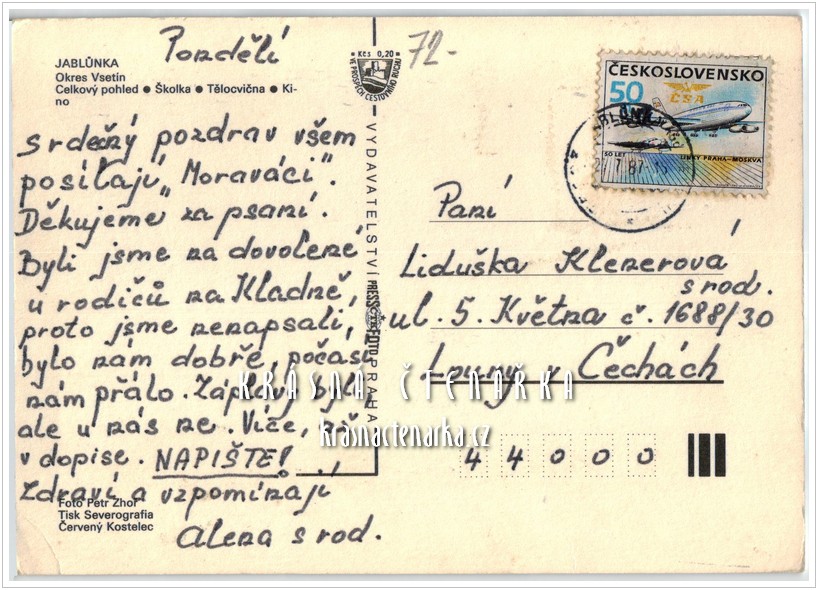 Pondělí
72-
JABLŮNKA
Okres Vsetín
Celkový pohled ● Školka ● Tělocvična ● Ki-
no
Kčs 0,20
VE PROSPĚCH CESTOVNÍHO RUCHU
Srdečný pozdrav všem
posílají „Moraváci".
Děkujeme za psaní.
Byli jsme na dovolené
u rodičů na Kladně,
proto jsme nenapsali,
bylo nám dobře, počasí
nám přálo. Záplavy byly,
ale u nás ne. Více, až
v dopise. NAPIŠTE!
Zdraví a vzpomínají
Alena s rod.
Foto Petr Zhoř
Tisk Severografia
Červený Kostelec
VYDAVATELSTVÍ PRESSFOTO PRAHA
ČESKOSLOVENSKO
50
ČSA
50 LET
LINKY PRAHA-MOSKVA
87
Paní
Liduška Klenerová
s rod.
ul. 5. Května č. 1688/30
Louny v Čechách
44000
KRÁSNÁ ČTENÁŘKA
krasnactenarka.cz